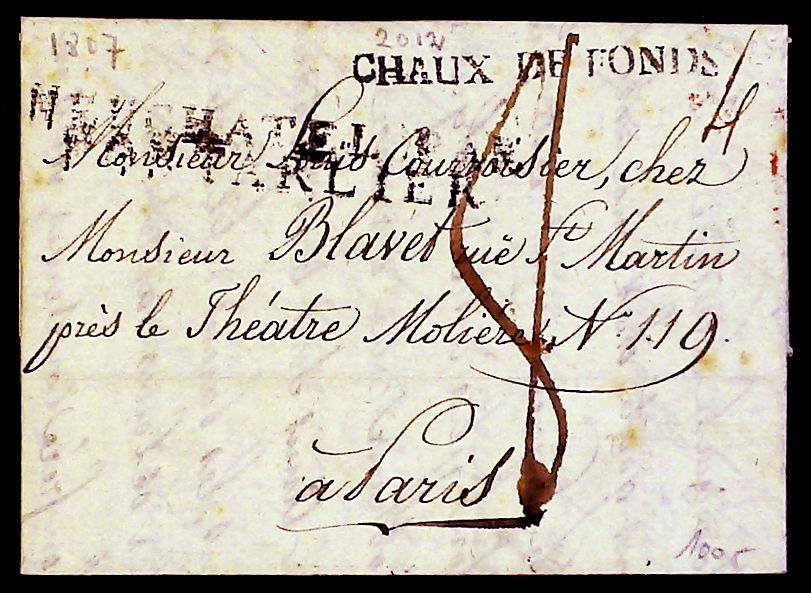 1807
2012
CHAUX DE FONDS
4
NEUCHATEL PAR
PONTARLIER
Monsieur Louis Courvoisier, chez
Monsieur Blavet ruë St Martin
près le Théatre Molière, No 119.
à Paris
100.-